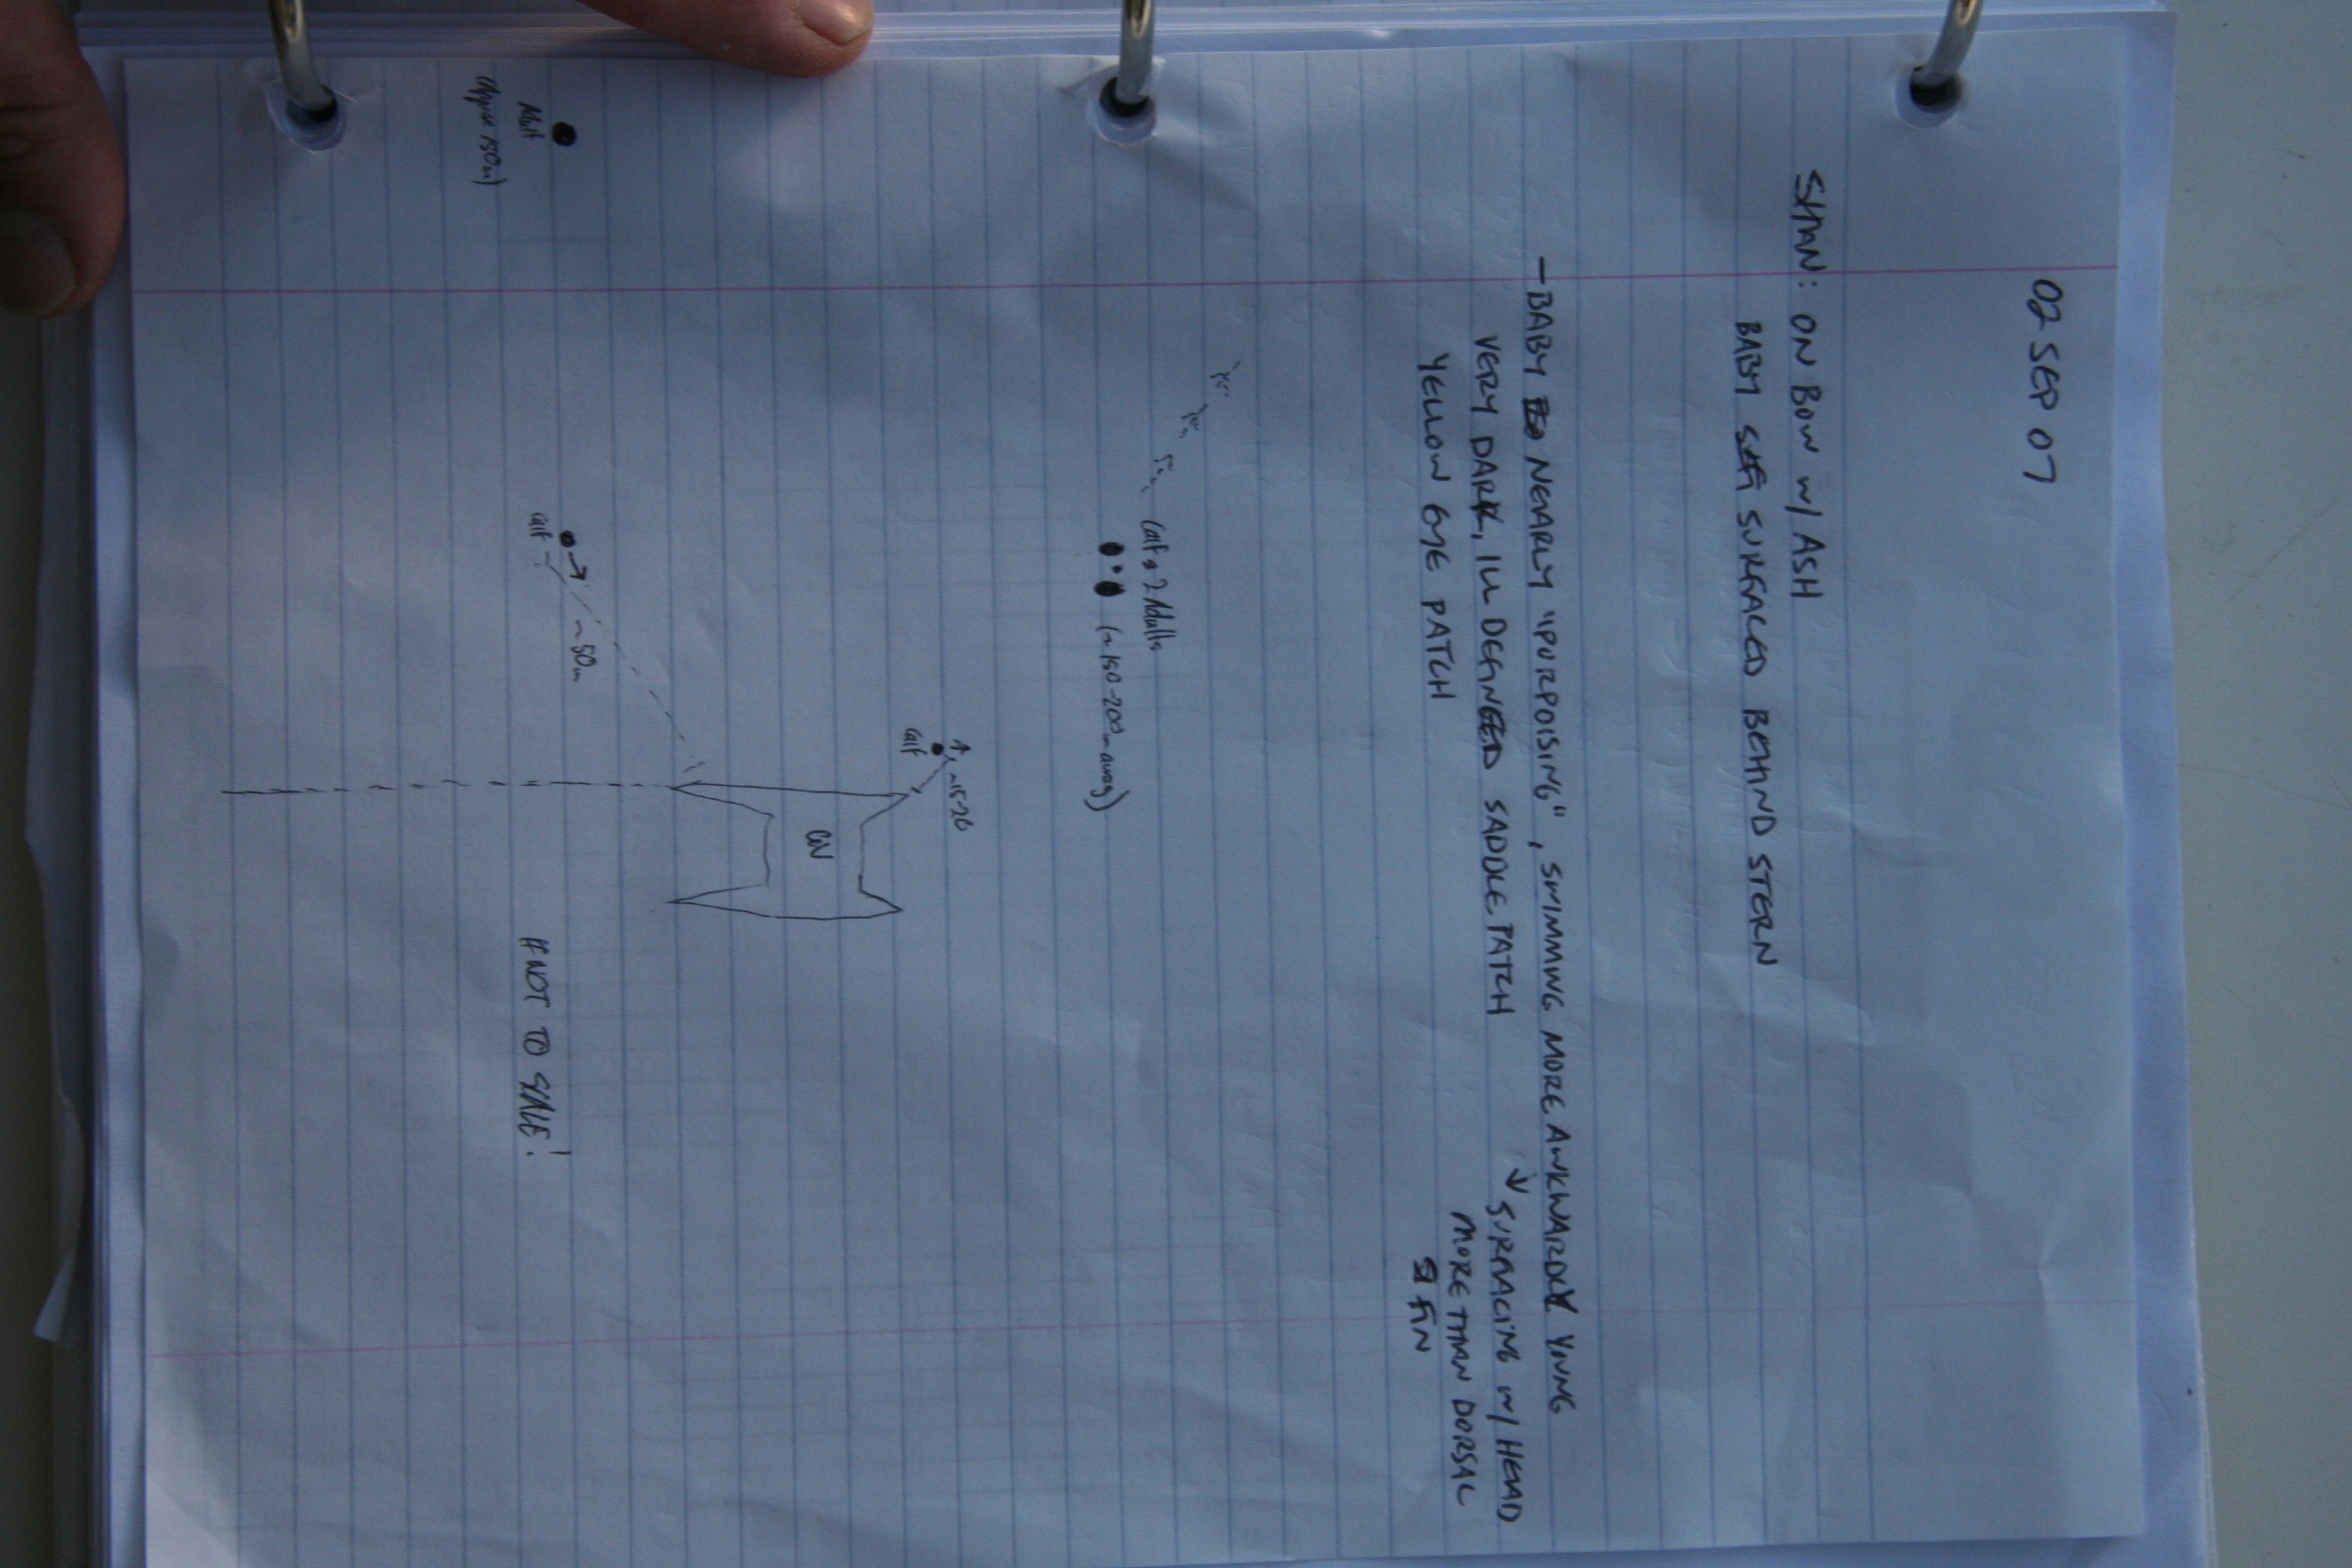 02 SEP 07
SHAN: ON BOW w/ ASH
BABY SURFACED BEHIND STERN
— BABY NEARLY "PORPOISING", SWIMMING MORE AWKWARDLY YOUNG
VERY DARK, ILL DEFINED SADDLE PATCH
YELLOW EYE PATCH
↓ SURFACING w/ HEAD
MORE THAN DORSAL
FIN
Calf & 2 Adults
(~150-200m away)
~15-20
Calf
Calf
~50m
Adult
150m)
# NOT TO SCALE!